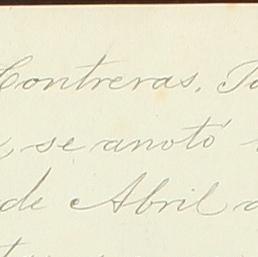 Contreras.
se anotó
de Abril